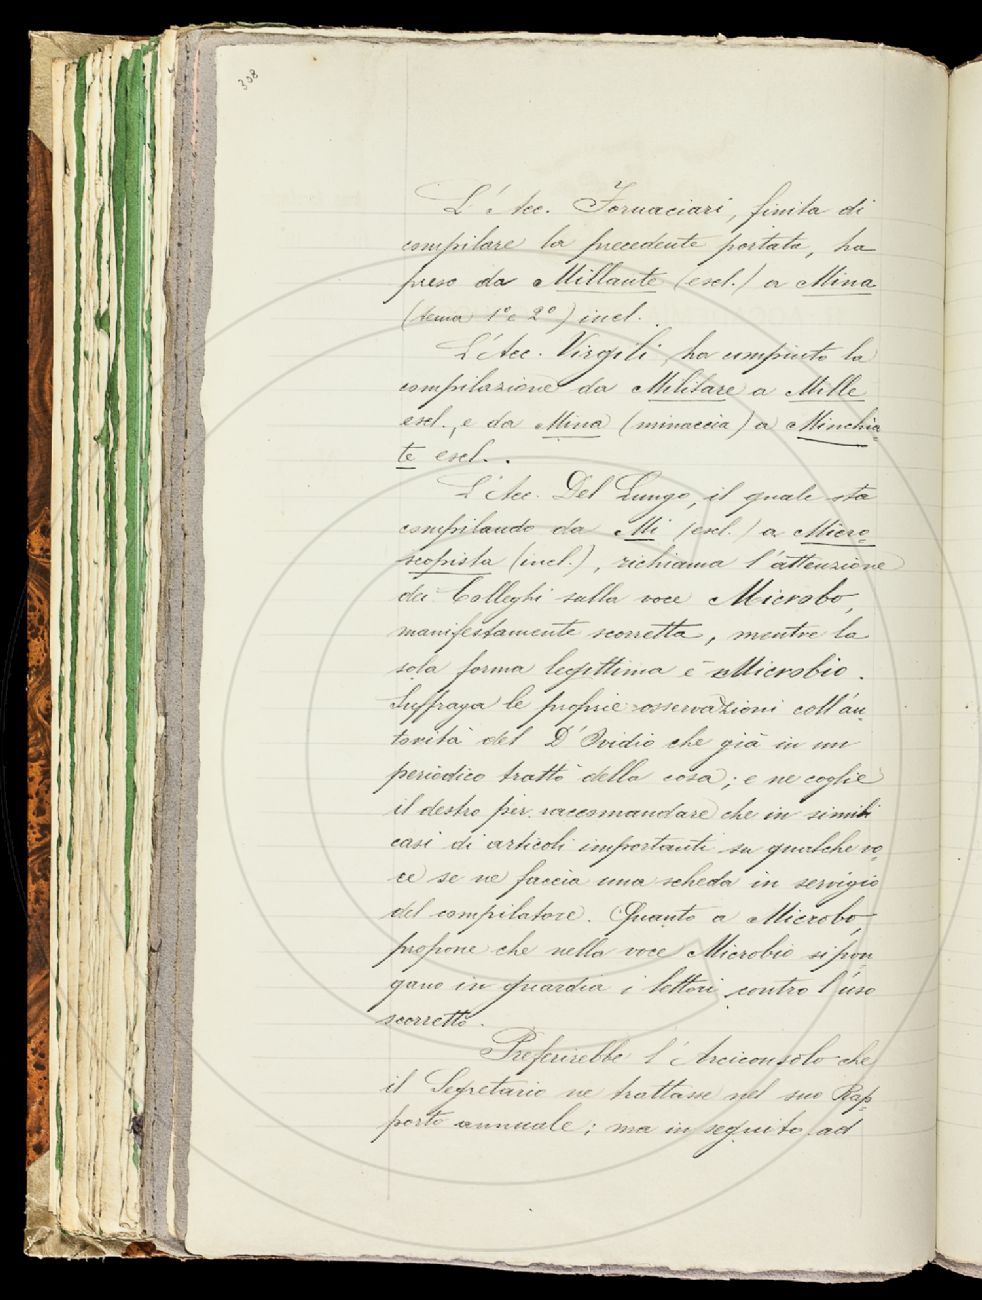 308
L'Acc. Fornaciari, finita di
compilare la precedente portata, ha
preso da Millante (escl.) a Mina
(tema 1º e 2º) incl..
L'Acc. Virgili ha compiuto la
compilazione da Militare a Mille
escl., e da Mina (minaccia) a Minchia=
te escl..
L'Acc. Del Lungo, il quale sta
compilando da Mi (escl.) a Micro=
scopista (incl.), richiama l'attenzione
dei Colleghi sulla voce Microbo,
manifestamente scorretta, mentre la
sola forma legittima è Microbio.
Suffraga le proprie osservazioni coll'au=
torità del D'Ovidio che già in un
periodico trattò della cosa; e ne coglie
il destro per raccomandare che in simili
casi di articoli importanti su qualche vo=
ce se ne faccia una scheda in servigio
del compilatore. Quanto a Microbo,
propone che nella voce Microbio si pon=
gano in guardia i lettori contro l'uso
scorretto.
Preferirebbe l'Arciconsolo che
il Segretario ne trattasse nel suo Rap=
porto annuale; ma in seguito ad